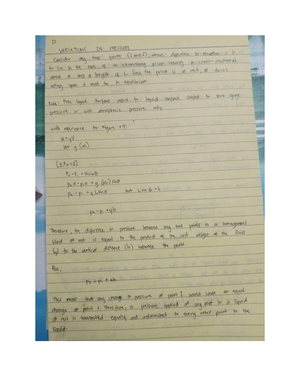 VARIATIONS IN PRESSURE
Consider any two points (1 and 2) whose difference in elevation is h
to be in the ends of an elementary prism having a cross-sectional
area a and a length of L. Since the prism is at rest, all forces
acting upon it must be in equilibrium
Note: Free liquid surface refers to liquid surface subject to zero gage
pressure or with atmospheric pressure only
with reference to Figure
W = γV
W = γ (aL)
[Σ Fx = 0]
F2 - F1 = W sin θ
P2 a - P1 a = γ (aL) sin θ
P2 - P1 = γ L sin θ but L sin θ = h
P2 - P1 = γh
Therefore, the difference in pressure between any two points in a homogeneous
fluid at rest is equal to the product of the unit weight of the fluid
(γ) to the vertical distance (h) between the points
Also:
P2 = P1 + γh
This means that any change in pressure at point 1 would cause an equal
change at point 2. Therefore, a pressure applied at any point in a liquid
at rest is transmitted equally and undiminished to every other point in the
liquid.